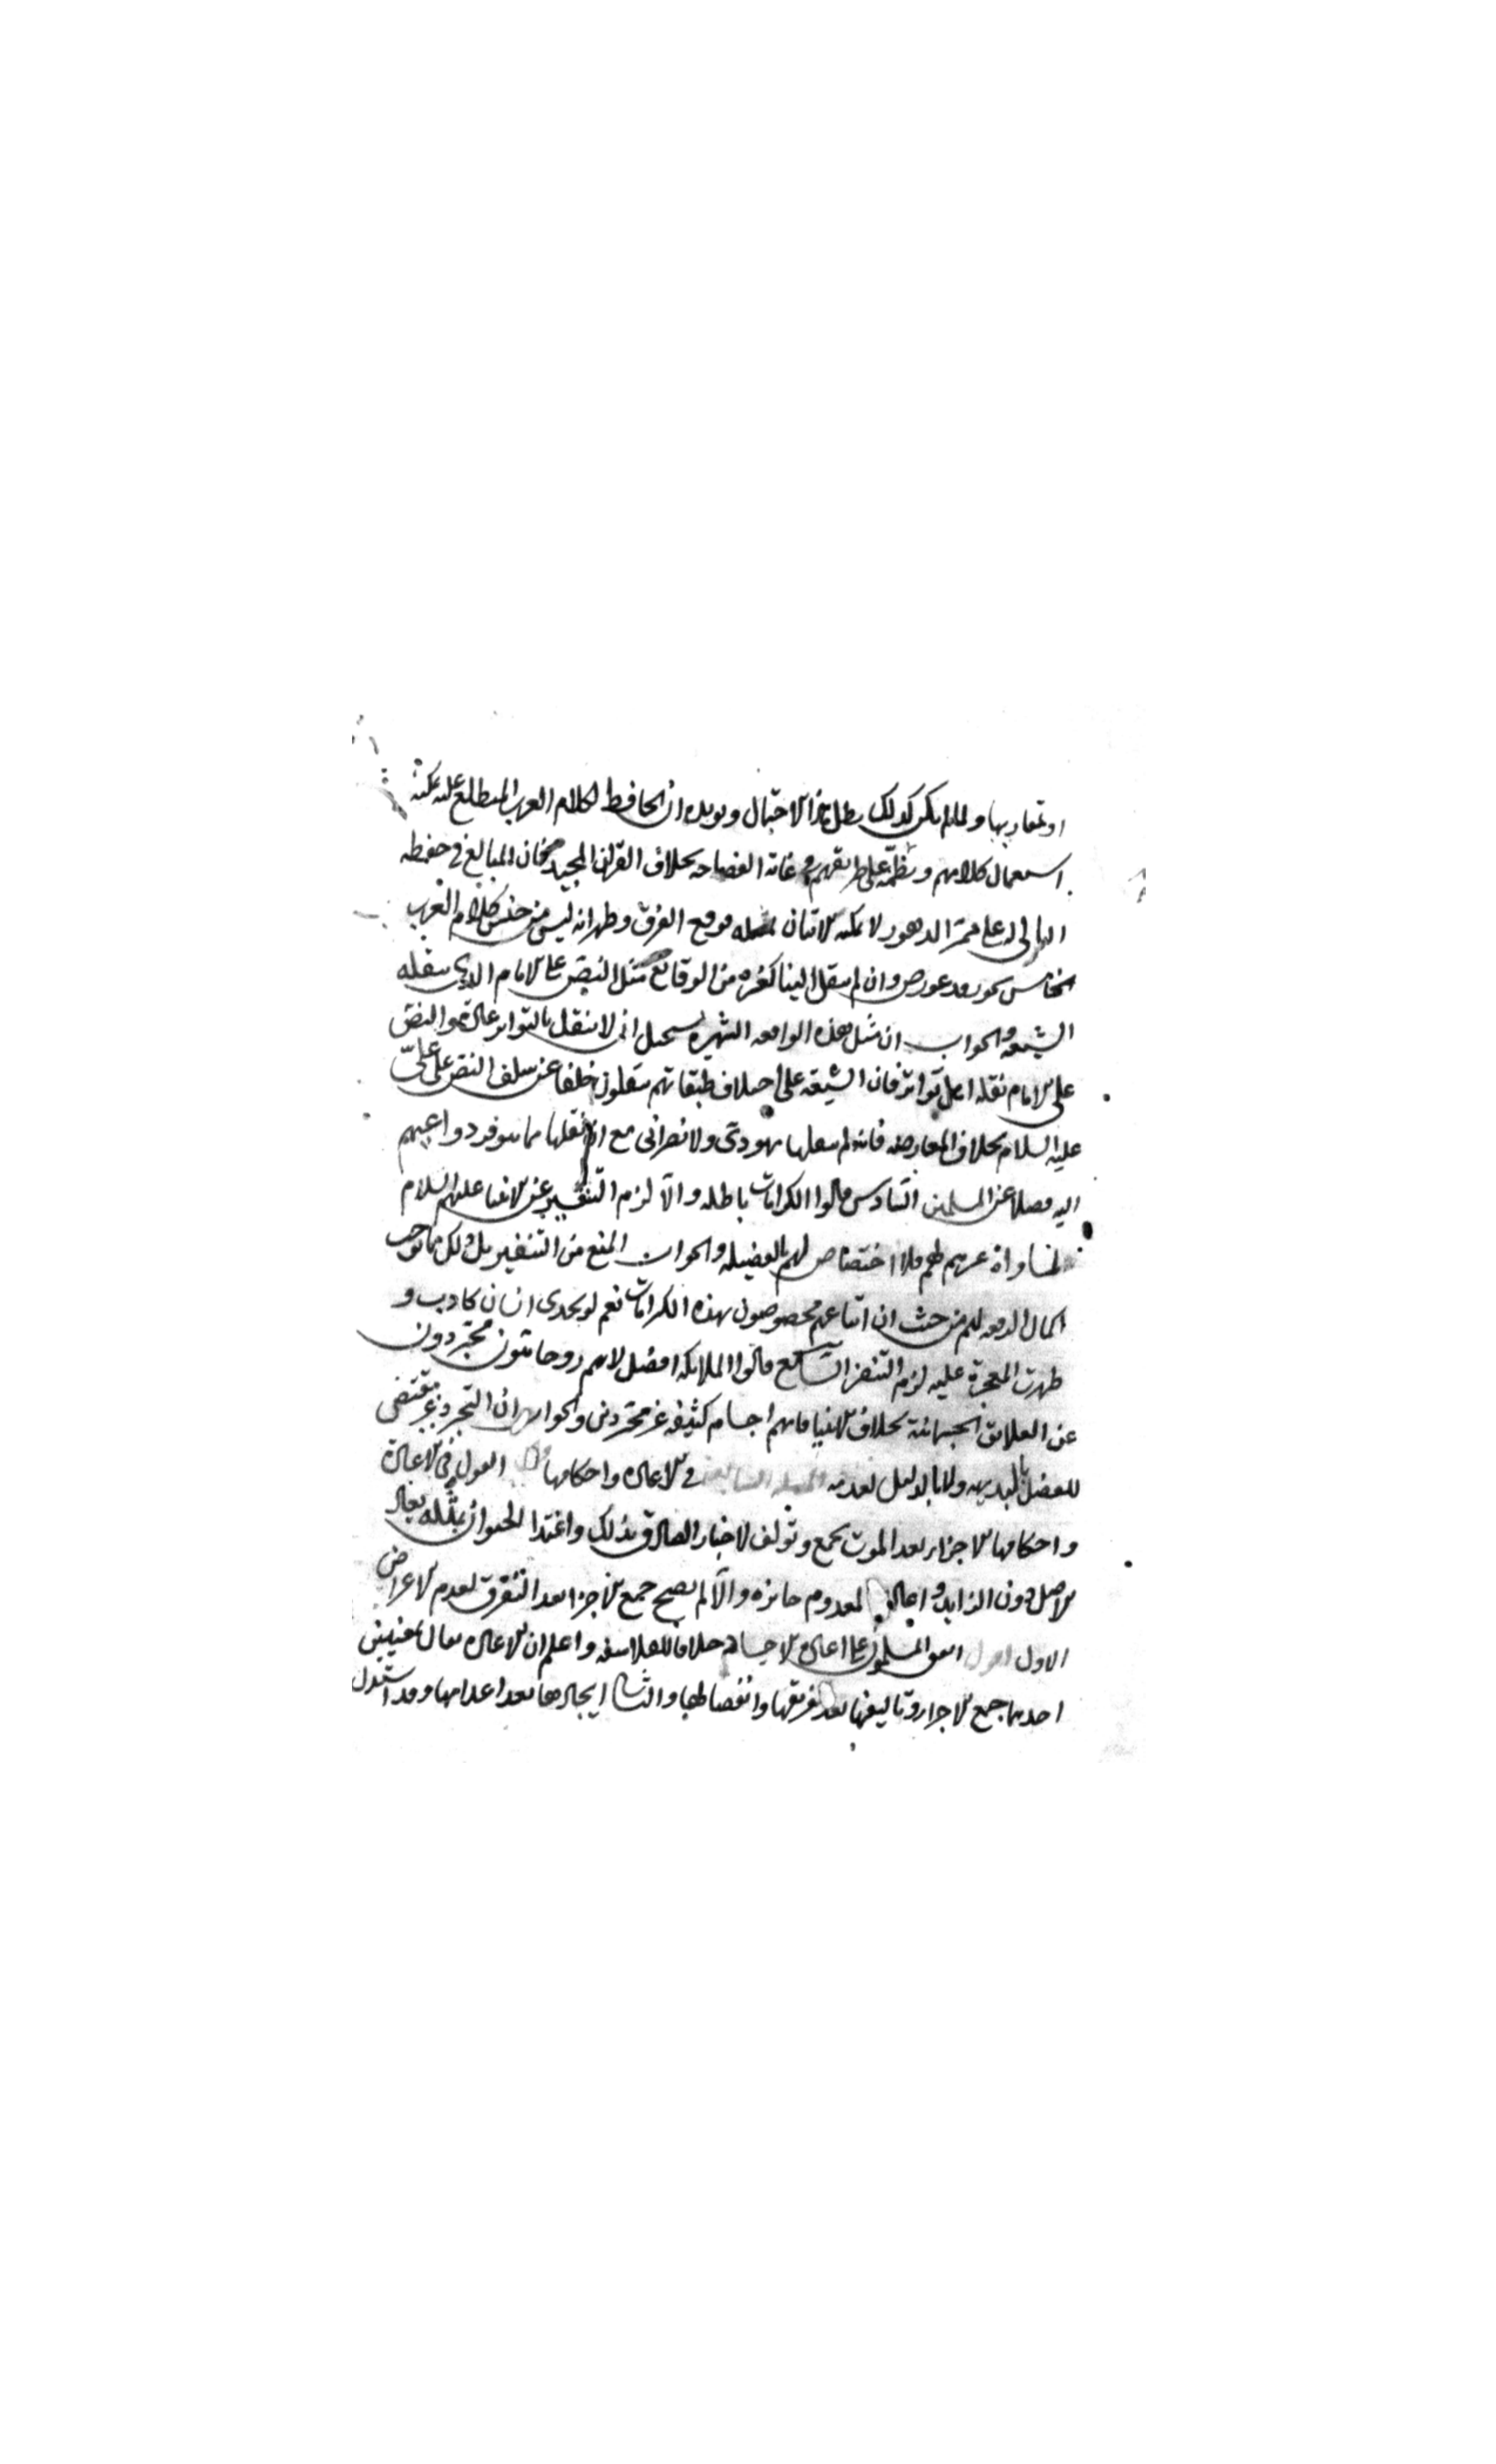 او تقاربها ولما لم يكن كذلك بطل هذا الاحتمال ويويده ان الحافظ لكلام العرب المتطلع عليه يمكنه
استعمال كلامهم ونظمه على طريقهم في غاية الفصاحة بخلاف القران المجيد فان المبالغ في حفظه
التالي له على ممر الدهور لا يمكنه الاتيان بمثله فوقع الفرق وظهر انه ليس من جنس كلام العرب
الخامس يجوز وقد عورض وان لم ينقل الينا كغيره من الوقائع مثل النص على الامام الذي ينقله
الشيعة والجواب ان مثل هذه الواقعة الشهيرة يستحيل ان لا ينقل بالتواتر عادة والنص
على الامام نقله اهل تواتر فان الشيعة على اختلاف طبقاتهم ينقلون خلفا عن سلف النص على علي
عليه السلام بخلاف المعارضة فانه لم ينقلها يهودي ولا نصراني مع ان نقلها مما يتوفر دواعيهم
اليه فضلا عن المسلمين السادس قالوا الكرامات باطلة والا لزم التنفير عن الانبياء عليهم السلام
لمساواة غيرهم لهم فلا اختصاص لهم بالفضيلة والجواب المنع من التنفير بل ذلك مما يوجب
اكمال الرفعة لهم من حيث ان اتباعهم مخصوصون بهذه الكرامات نعم لو تحدى انسان كاذب و
ظهرت المعجزة عليه لزم التنفير السابع قالوا الملايكة افضل لانهم روحانيون مجردون
عن العلائق الجسمانية بخلاف الانبيا فانهم اجسام كثيفة غير مجردين والجواب ان التجرد غير مقتضي
للفضل بالبديهة ولا بالدليل لعدمه السابعة في الاعادة واحكامها قال القول في الاعادة
واحكامها الاجزاء بعد الموت تجمع وتولف لاخبار الصادق بذلك واغتذا الحيوان بمثله يعاد
الاصل دون الزايد واعادة المعدوم جائزة والا لم يصح جمع الاجزا بعد التفرق لعدم الاعراض
الاول اقول اتفق المسلمون على اعادة الاجسام خلافا للفلاسفة واعلم ان الاعادة تقال بمعنيين
احدهما جمع الاجزاء وتاليفها بعد تفريقها وانفصالها والثاني ايجادها بعد اعدامها وقد استدل